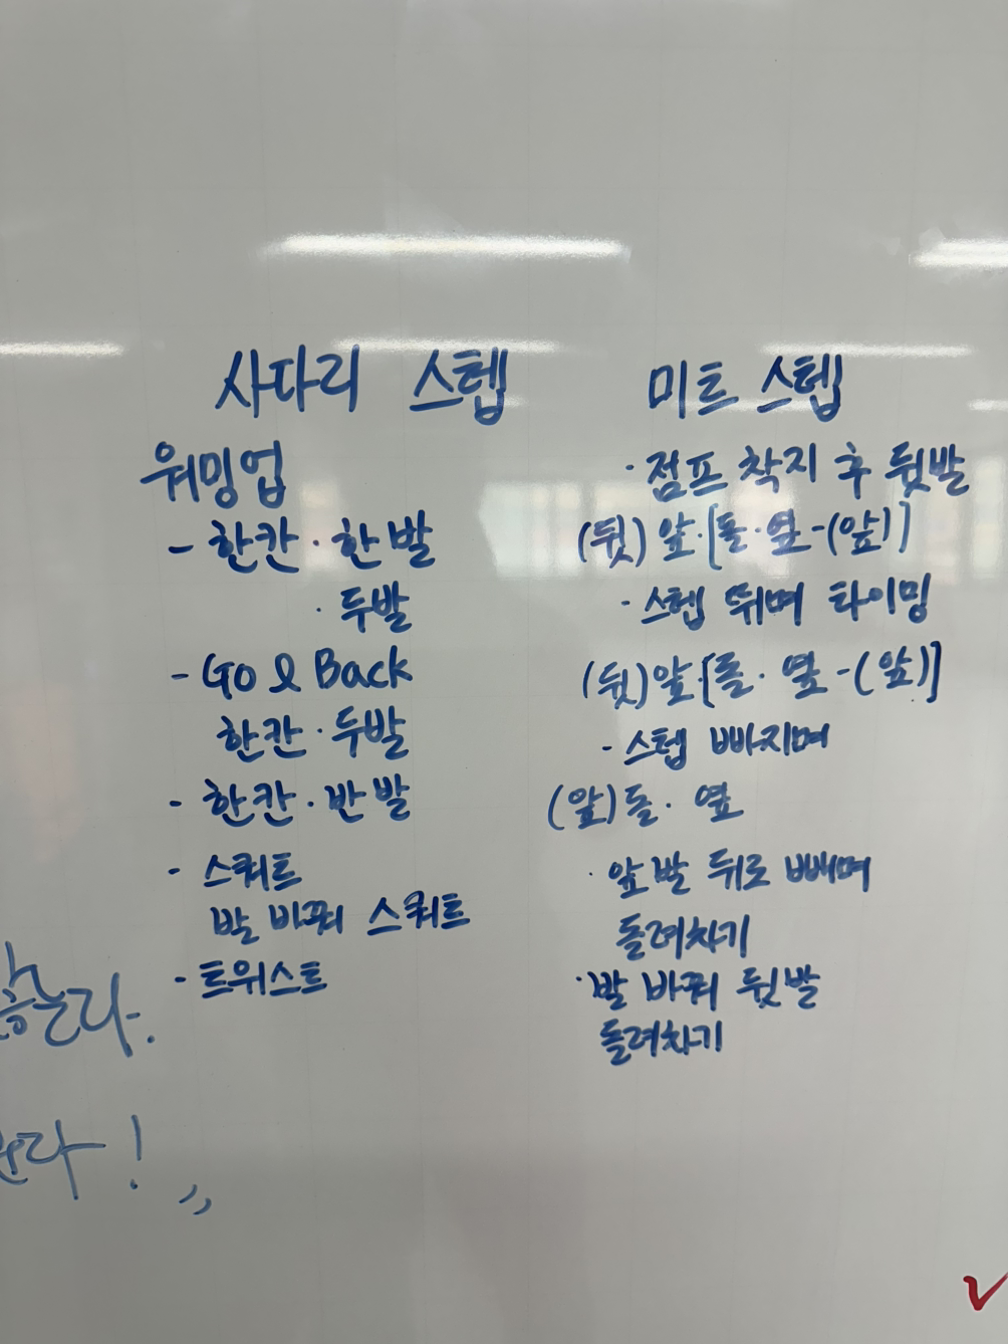 사다리 스텝
워밍업
- 한칸 · 한발
· 두발
- Go & Back
한칸 · 두발
- 한칸 · 반발
- 스쿼트
발 바꿔 스쿼트
- 트위스트
미트 스텝
· 점프 착지 후 뒷발
(뒷) 앞·[돌·옆-(앞)]
· 스텝 뛰며 타이밍
(뒷) 앞·[돌·옆-(앞)]
· 스텝 빠지며
(앞) 돌·옆
· 앞발 뒤로 빼며
돌려차기
· 발 바꿔 뒷발
돌려차기